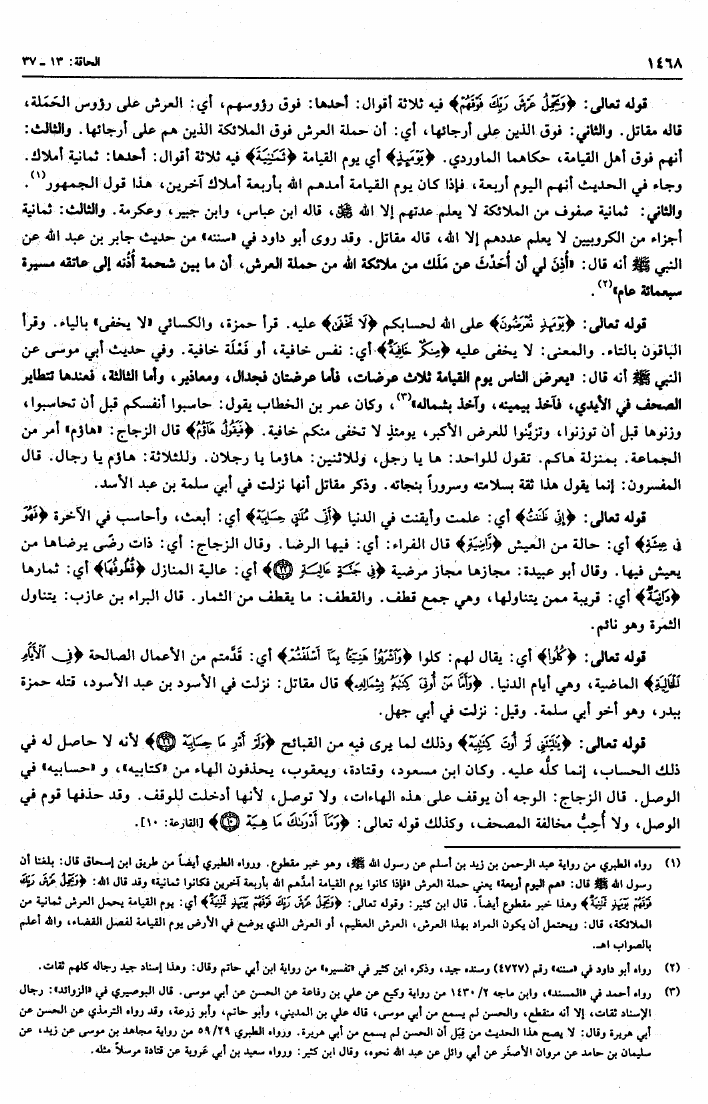 ١٤٦٨
الحاقة: ١٣ ـ ٣٧
قوله تعالى: ﴿وَيَحْمِلُ عَرْشَ رَبِّكَ فَوْقَهُمْ﴾ فيه ثلاثة أقوال: أحدها: فوق رؤوسهم، أي: العرش على رؤوس الحَمَلة،
قاله مقاتل. والثاني: فوق الذين على أرجائها، أي: أن حملة العرش فوق الملائكة الذين هم على أرجائها. والثالث:
أنهم فوق أهل القيامة، حكاهما الماوردي. ﴿يَوْمَئِذٍ﴾ أي يوم القيامة ﴿ثَمَنِيَةٌ﴾ فيه ثلاثة أقوال: أحدها: ثمانية أملاك.
وجاء في الحديث أنهم اليوم أربعة، فإذا كان يوم القيامة أمدهم الله بأربعة أملاك آخرين، هذا قول الجمهور(١).
والثاني: ثمانية صفوف من الملائكة لا يعلم عدتهم إلا الله ﷻ، قاله ابن عباس، وابن جبير، وعكرمة. والثالث: ثمانية
أجزاء من الكروبيين لا يعلم عددهم إلا الله، قاله مقاتل. وقد روى أبو داود في «سننه» من حديث جابر بن عبد الله عن
النبي ﷺ أنه قال: «أُذِنَ لي أن أُحَدِّثَ عن مَلَك من ملائكة الله من حملة العرش، أن ما بين شحمة أُذُنه إلى عاتقه مسيرة
سبعمائة عام»(٢).
قوله تعالى: ﴿يَوْمَئِذٍ تُعْرَضُونَ﴾ على الله لحسابكم ﴿لَا تَخْفَى﴾ عليه. قرأ حمزة، والكسائي «لا يخفى» بالياء. وقرأ
الباقون بالتاء. والمعنى: لا يخفى عليه ﴿مِنكُمْ خَافِيَةٌ﴾ أي: نفس خافية، أو فَعْلَة خافية. وفي حديث أبي موسى عن
النبي ﷺ أنه قال: «يعرض الناس يوم القيامة ثلاث عرضات، فأما عرضتان فجدال، ومعاذير، وأما الثالثة، فعندها تتطاير
الصحف في الأيدي، فآخذ بيمينه، وآخذ بشماله»(٣)، وكان عمر بن الخطاب يقول: حاسبوا أنفسكم قبل أن تحاسبوا،
وزنوها قبل أن توزنوا، وتزيَّنوا للعرض الأكبر، يومئذٍ لا تخفى منكم خافية. ﴿فَيَقُولُ هَآؤُمُ﴾ قال الزجاج: «هاؤم» أمر من
الجماعة. بمنزلة هاكم. تقول للواحد: ها يا رجل، وللاثنين: هاؤما يا رجلان. وللثلاثة: هاؤم يا رجال. قال
المفسرون: إنما يقول هذا ثقة بسلامته وسروراً بنجاته. وذكر مقاتل أنها نزلت في أبي سلمة بن عبد الأسد.
قوله تعالى: ﴿إِنِّي ظَنَنتُ﴾ أي: علمت وأيقنت في الدنيا ﴿أَنِّي مُلَقٍ حِسَابِيَهْ﴾ أي: أبعث، وأحاسب في الآخرة ﴿فَهُوَ
فِي عِيشَةٍ﴾ أي: حالة من العيش ﴿رَّاضِيَةٍ﴾ قال الفراء: أي: فيها الرضا. وقال الزجاج: أي: ذات رضًى يرضاها من
يعيش فيها. وقال أبو عبيدة: مجازها مجاز مرضية ﴿فِي جَنَّةٍ عَالِيَةٍ ۝٢٢﴾ أي: عالية المنازل ﴿قُطُوفُهَا﴾ أي: ثمارها
﴿دَانِيَةٌ﴾ أي: قريبة ممن يتناولها، وهي جمع قطف. والقطف: ما يقطف من الثمار. قال البراء بن عازب: يتناول
الثمرة وهو نائم.
قوله تعالى: ﴿كُلُوا﴾ أي: يقال لهم: كلوا ﴿وَاشْرَبُوا هَنِيٓئًا بِمَا أَسْلَفْتُمْ﴾ أي: قدَّمتم من الأعمال الصالحة ﴿فِي الْأَيَّامِ
الْخَالِيَةِ﴾ الماضية، وهي أيام الدنيا. ﴿وَأَمَّا مَنْ أُوتِيَ كِتَبَهُ بِشِمَالِهِ﴾ قال مقاتل: نزلت في الأسود بن عبد الأسود، قتله حمزة
ببدر، وهو أخو أبي سلمة. وقيل: نزلت في أبي جهل.
قوله تعالى: ﴿يَلَيْتَنِي لَمْ أُوتَ كِتَبِيَهْ﴾ وذلك لما يرى فيه من القبائح ﴿وَلَمْ أَدْرِ مَا حِسَابِيَهْ ۝٢٦﴾ لأنه لا حاصل له في
ذلك الحساب، إنما كلُّه عليه. وكان ابن مسعود، وقتادة، ويعقوب، يحذفون الهاء من «كتابيه»، و «حسابيه» في
الوصل. قال الزجاج: الوجه أن يوقف على هذه الهاءات، ولا توصل، لأنها أدخلت للوقف. وقد حذفها قوم في
الوصل، ولا أُحِبُّ مخالفة المصحف، وكذلك قوله تعالى: ﴿وَمَآ أَدْرَىٰكَ مَا هِيَهْ ۝١٠﴾ [القارعة: ١٠].
(١) رواه الطبري من رواية عبد الرحمن بن زيد بن أسلم عن رسول الله ﷺ، وهو خبر مقطوع. ورواه الطبري أيضاً من طريق ابن إسحاق قال: بلغنا أن
رسول الله ﷺ قال: «هم اليوم أربعة» يعني حملة العرش «فإذا كانوا يوم القيامة أمدَّهم الله بأربعة آخرين فكانوا ثمانية» وقد قال الله: ﴿وَيَحْمِلُ عَرْشَ رَبِّكَ
فَوْقَهُمْ يَوْمَئِذٍ ثَمَنِيَةٌ﴾ وهذا خبر مقطوع أيضاً. قال ابن كثير: وقوله تعالى: ﴿وَيَحْمِلُ عَرْشَ رَبِّكَ فَوْقَهُمْ يَوْمَئِذٍ ثَمَنِيَةٌ﴾ أي: يوم القيامة يحمل العرش ثمانية من
الملائكة، قال: ويحتمل أن يكون المراد بهذا العرش، العرش العظيم، أو العرش الذي يوضع في الأرض يوم القيامة لفصل القضاء، والله أعلم
بالصواب اهـ.
(٢) رواه أبو داود في «سننه» رقم (٤٧٢٧) وسنده جيد، وذكره ابن كثير في «تفسيره» من رواية ابن أبي حاتم وقال: وهذا إسناد جيد رجاله كلهم ثقات.
(٣) رواه أحمد في «المسند»، وابن ماجه ١٤٣٠/٢ من رواية وكيع عن علي بن رفاعة عن الحسن عن أبي موسى. قال البوصيري في «الزوائد»: رجال
الإسناد ثقات، إلا أنه منقطع، والحسن لم يسمع من أبي موسى، قاله علي بن المديني، وأبو حاتم، وأبو زرعة، وقد رواه الترمذي عن الحسن عن
أبي هريرة وقال: لا يصح هذا الحديث من قِبَل أن الحسن لم يسمع من أبي هريرة. ورواه الطبري ٥٩/٢٩ من رواية مجاهد بن موسى عن زيد، عن
سليمان بن حامد عن مروان الأصفر عن أبي وائل عن عبد الله نحوه، وقال ابن كثير: ورواه سعيد بن أبي عَروبة عن قتادة مرسلاً مثله.